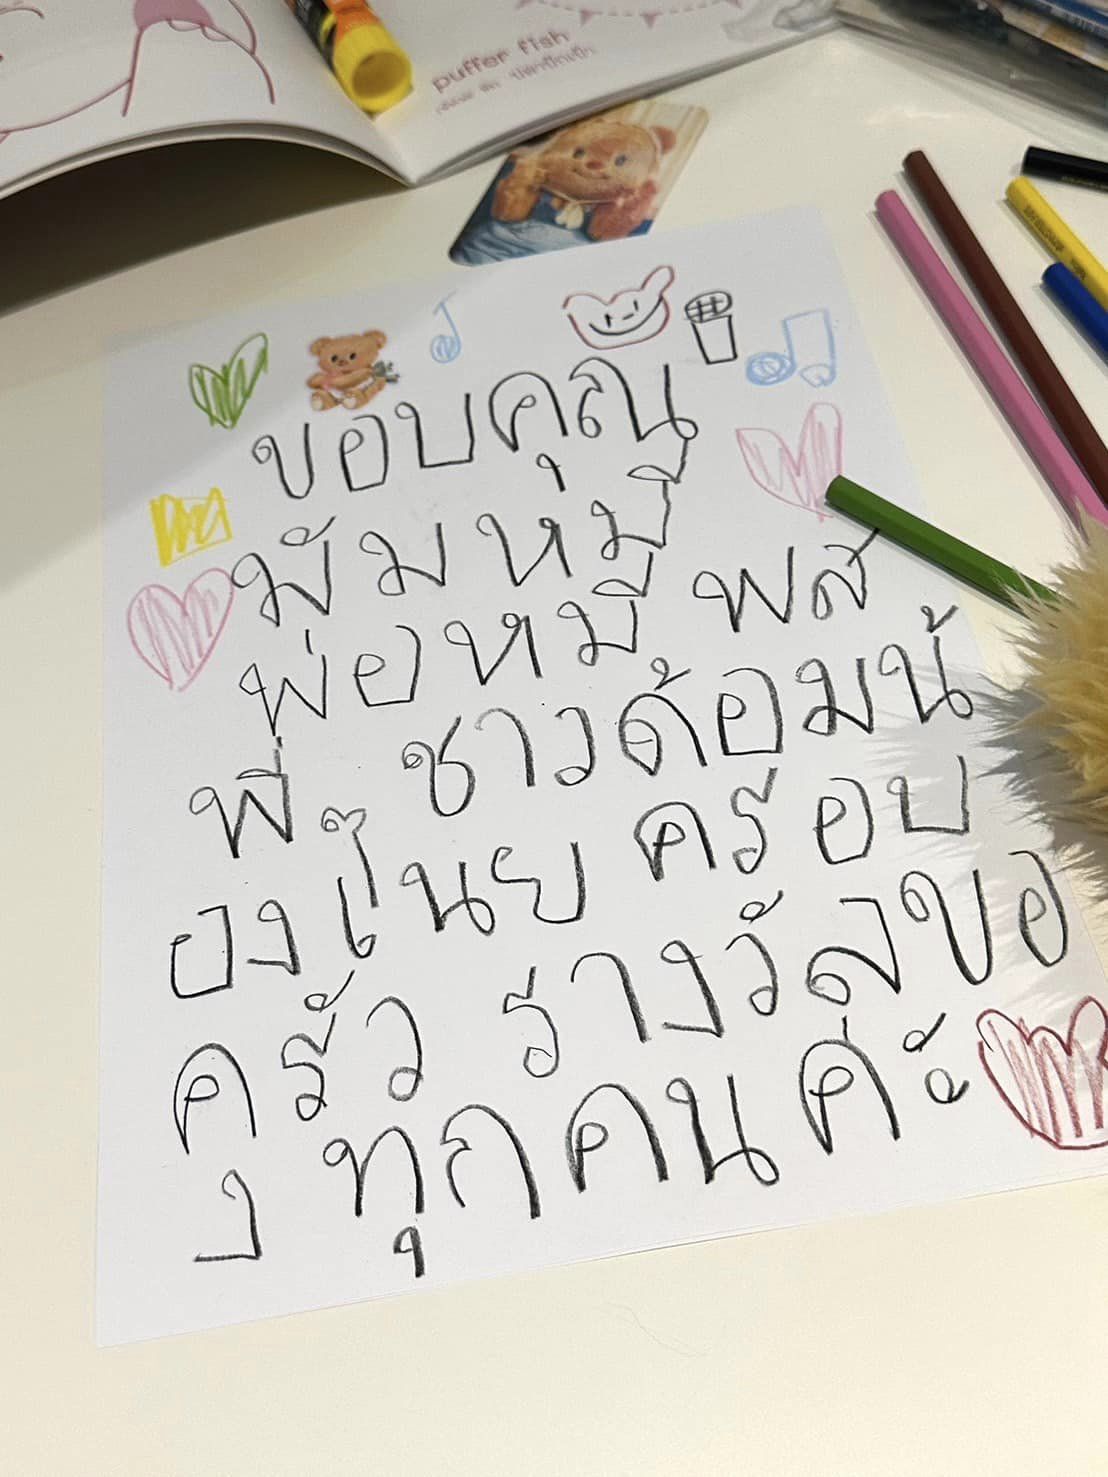 puffer fish
ขอบคุณ
มัมหมี
พ่อหมี พส
พี่ ชาวด้อมน้
องเนย ครอบ
ครัว รางวัลขอ
ง ทุกคนค่ะ